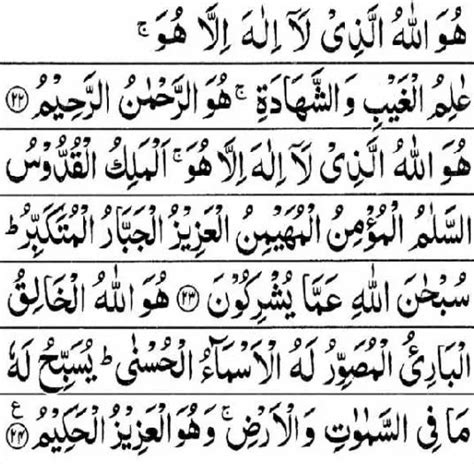 هُوَ اللّٰهُ الَّذِیْ لَاۤ اِلٰهَ اِلَّا هُوَ ۚ
عٰلِمُ الْغَیْبِ وَالشَّهَادَةِ ۚ هُوَ الرَّحْمٰنُ الرَّحِیْمُ ﴿۲۲﴾
هُوَ اللّٰهُ الَّذِیْ لَاۤ اِلٰهَ اِلَّا هُوَ ۚ اَلْمَلِكُ الْقُدُّوْسُ
السَّلٰمُ الْمُؤْمِنُ الْمُهَیْمِنُ الْعَزِیْزُ الْجَبَّارُ الْمُتَكَبِّرُ ؕ
سُبْحٰنَ اللّٰهِ عَمَّا یُشْرِكُوْنَ ﴿۲۳﴾ هُوَ اللّٰهُ الْخَالِقُ
الْبَارِئُ الْمُصَوِّرُ لَهُ الْاَسْمَآءُ الْحُسْنٰی ؕ یُسَبِّحُ لَهٗ
مَا فِی السَّمٰوٰتِ وَالْاَرْضِ ۚ وَهُوَ الْعَزِیْزُ الْحَكِیْمُ ﴿۲۴﴾ ع